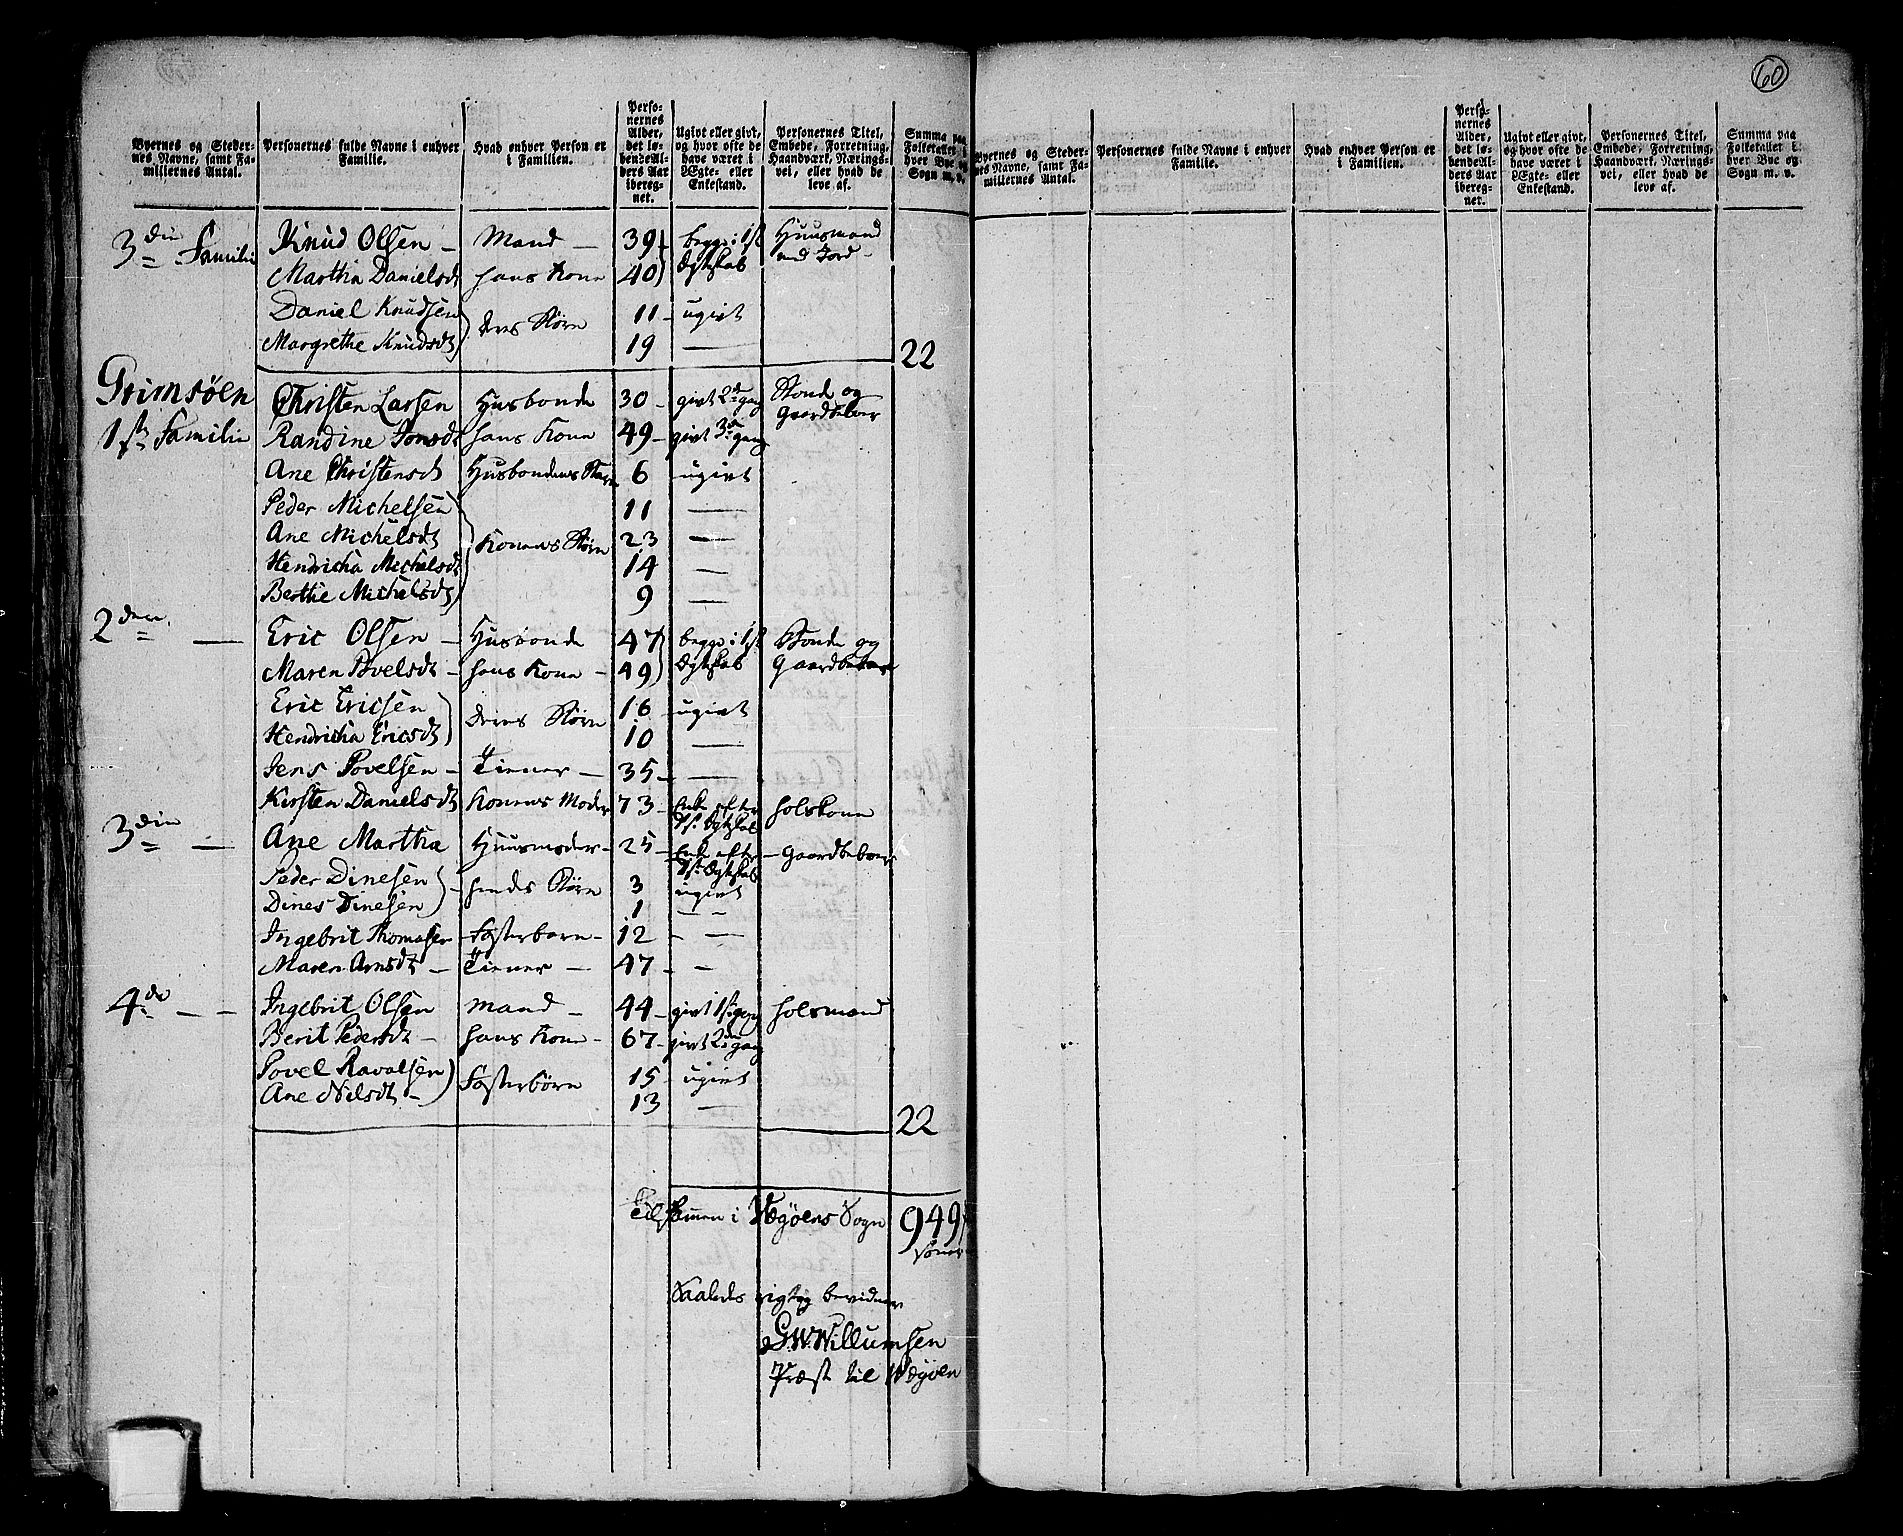 60
Byernes og Steder-
nes Navne, samt Fa-
miliernes Antal.
Personernes fulde Navne i enhver
Familie.
Hvad enhver Person er
i Familien.
Perso-
nernes
Alder,
det lø-
bendeAl-
ders Aar
ibereg-
net.
Ugivt eller givt,
og hvor ofte de
have været i
Ægte- eller
Enkestand.
Personernes Titel,
Embede, Forretning,
Haandværk, Nærings-
vei, eller hvad de
leve af.
Summa paa
Folketallet i
hver Bye og
Sogn m. v.
3die Familie Knud Olsen - Mand - 39 begge i 1ste Huusmand
Ægteskab med Jord -
Martha Danielsdt hans Kone 40
Daniel Knudsen deres Børn 11 - ugivt
Margrethe Knudsdt 19 — 22
Grimsøen Christen Larsen Husbonde 30 - givt 2den gang Bonde og
Gaardbeboer
1ste Familie Randine Jonsdt hans Kone 49 - givt 3die gang
Ane Christensdt Husbondens Barn 6 ugivt
Peder Michelsen 11 —
Ane Michelsdt Konens Børn 23 —
Hendricha Michelsdt 14 —
Berthe Michelsdt 9 —
2den — Eric Olsen - Husbonde 47 begge i 1ste Bonde og
Maren Povelsdt - hans Kone - 49 Ægteskab Gaardbeboer
Eric Ericsen deres Børn 16 - ugivt
Hendricha Ericsdt 10 —
Jens Povelsen - Tiener - 35 - —
Kirsten Danielsdt Konens Moder 73 - Enke efter Folskone
1ste Ægteskab
3die — Ane Martha Huusmoder - 25 - Enke efter - Gaardbeboer
1ste Ægteskab
Peder Dinesen - hendes Børn 3 ugivt
Dines Dinesen 1 - -
Ingebrit Thomasen - Fosterbarn - 12 - —
Maren Arnsdt - Tiener - 47 - -
4de - - Ingebrit Olsen Mand - 44 - givt 1ste gang Folsmand
Berit Pedersdt - hans Kone - 67 - givt 2den gang
Povel Ravalsen Fosterbørn 15 - ugivt
Ane Nilsdt - 13 — 22
Tilsammen i Vegøens Sogn 949
Saaledes rigtig bevidner
G.W. Willumsen
Præst til Wegøen
Byernes og Steder-
nes Navne, samt Fa-
miliernes Antal.
Personernes fulde Navne i enhver
Familie.
Hvad enhver Person er
i Familien.
Perso-
nernes
Alder,
det lø-
bendeAl-
ders Aar
ibereg-
net.
Ugivt eller givt,
og hvor ofte de
have været i
Ægte- eller
Enkestand.
Personernes Titel,
Embede, Forretning,
Haandværk, Nærings-
vei, eller hvad de
leve af.
Summa paa
Folketallet i
hver Bye og
Sogn m. v.